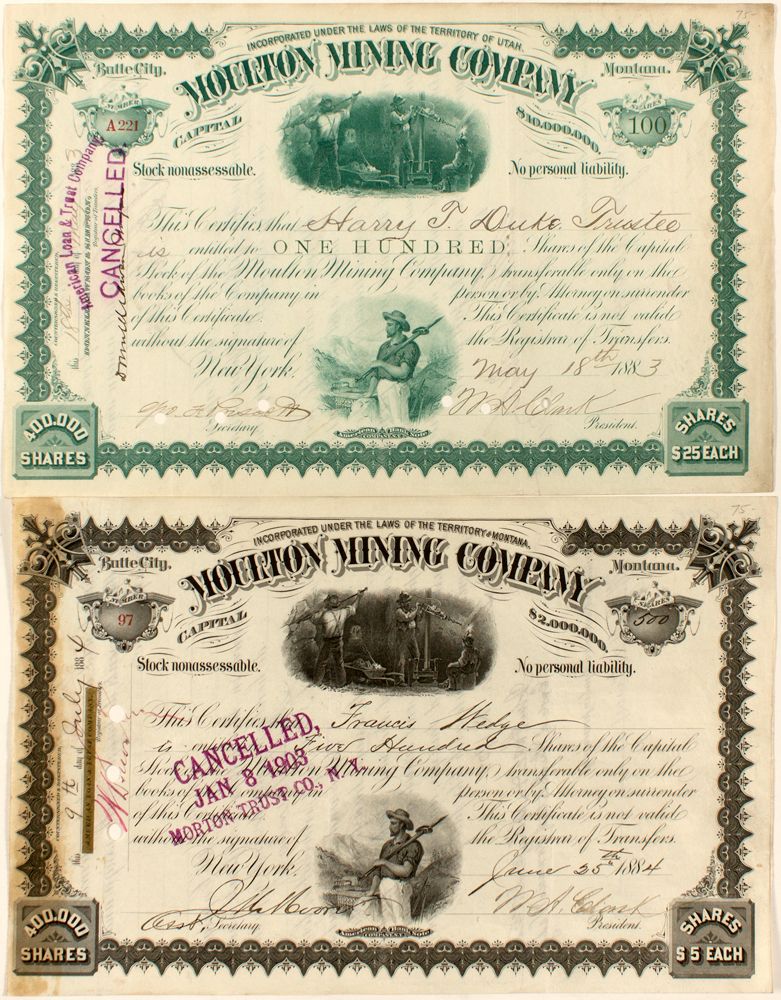 75-
INCORPORATED UNDER THE LAWS OF THE TERRITORY OF UTAH.
Butte City.
MOULTON MINING COMPANY
Montana.
NUMBER
A 221
CAPITAL
$10,000,000.
SHARES
100
Stock nonassessable.
No personal liability.
American Loan & Trust Company
CANCELLED
This Certifies that Harry T. Duke. Trustee
is entitled to ONE HUNDRED Shares of the Capital
Stock of the Moulton Mining Company, transferable only on the
books of the Company in person or by Attorney on surrender
of this Certificate. This Certificate is not valid
without the signature of the Registrar of Transfers.
New York, May 18th 1883
W A Clark
Secretary
President.
American Bank Note
COMPANY
400.000
SHARES
SHARES
$25 EACH
75-
INCORPORATED UNDER THE LAWS OF THE TERRITORY OF MONTANA.
Butte City.
MOULTON MINING COMPANY
Montana.
NUMBER
97
CAPITAL
$2,000,000.
SHARES
500
Stock nonassessable.
No personal liability.
this 9th day of July 1884
AMERICAN LOAN & TRUST COMPANY
This Certifies that Francis Wedge
is entitled to Five Hundred Shares of the Capital
Stock of the Moulton Mining Company, transferable only on the
books of the Company in person or by Attorney on surrender
of this Certificate. This Certificate is not valid
without the signature of the Registrar of Transfers.
CANCELLED,
JAN 8 1903
MORTON TRUST CO., N.Y.
New York, June 25th 1884
W. A. Clark
Asst. Secretary
President.
American Bank Note
COMPANY
400.000
SHARES
SHARES
$5 EACH